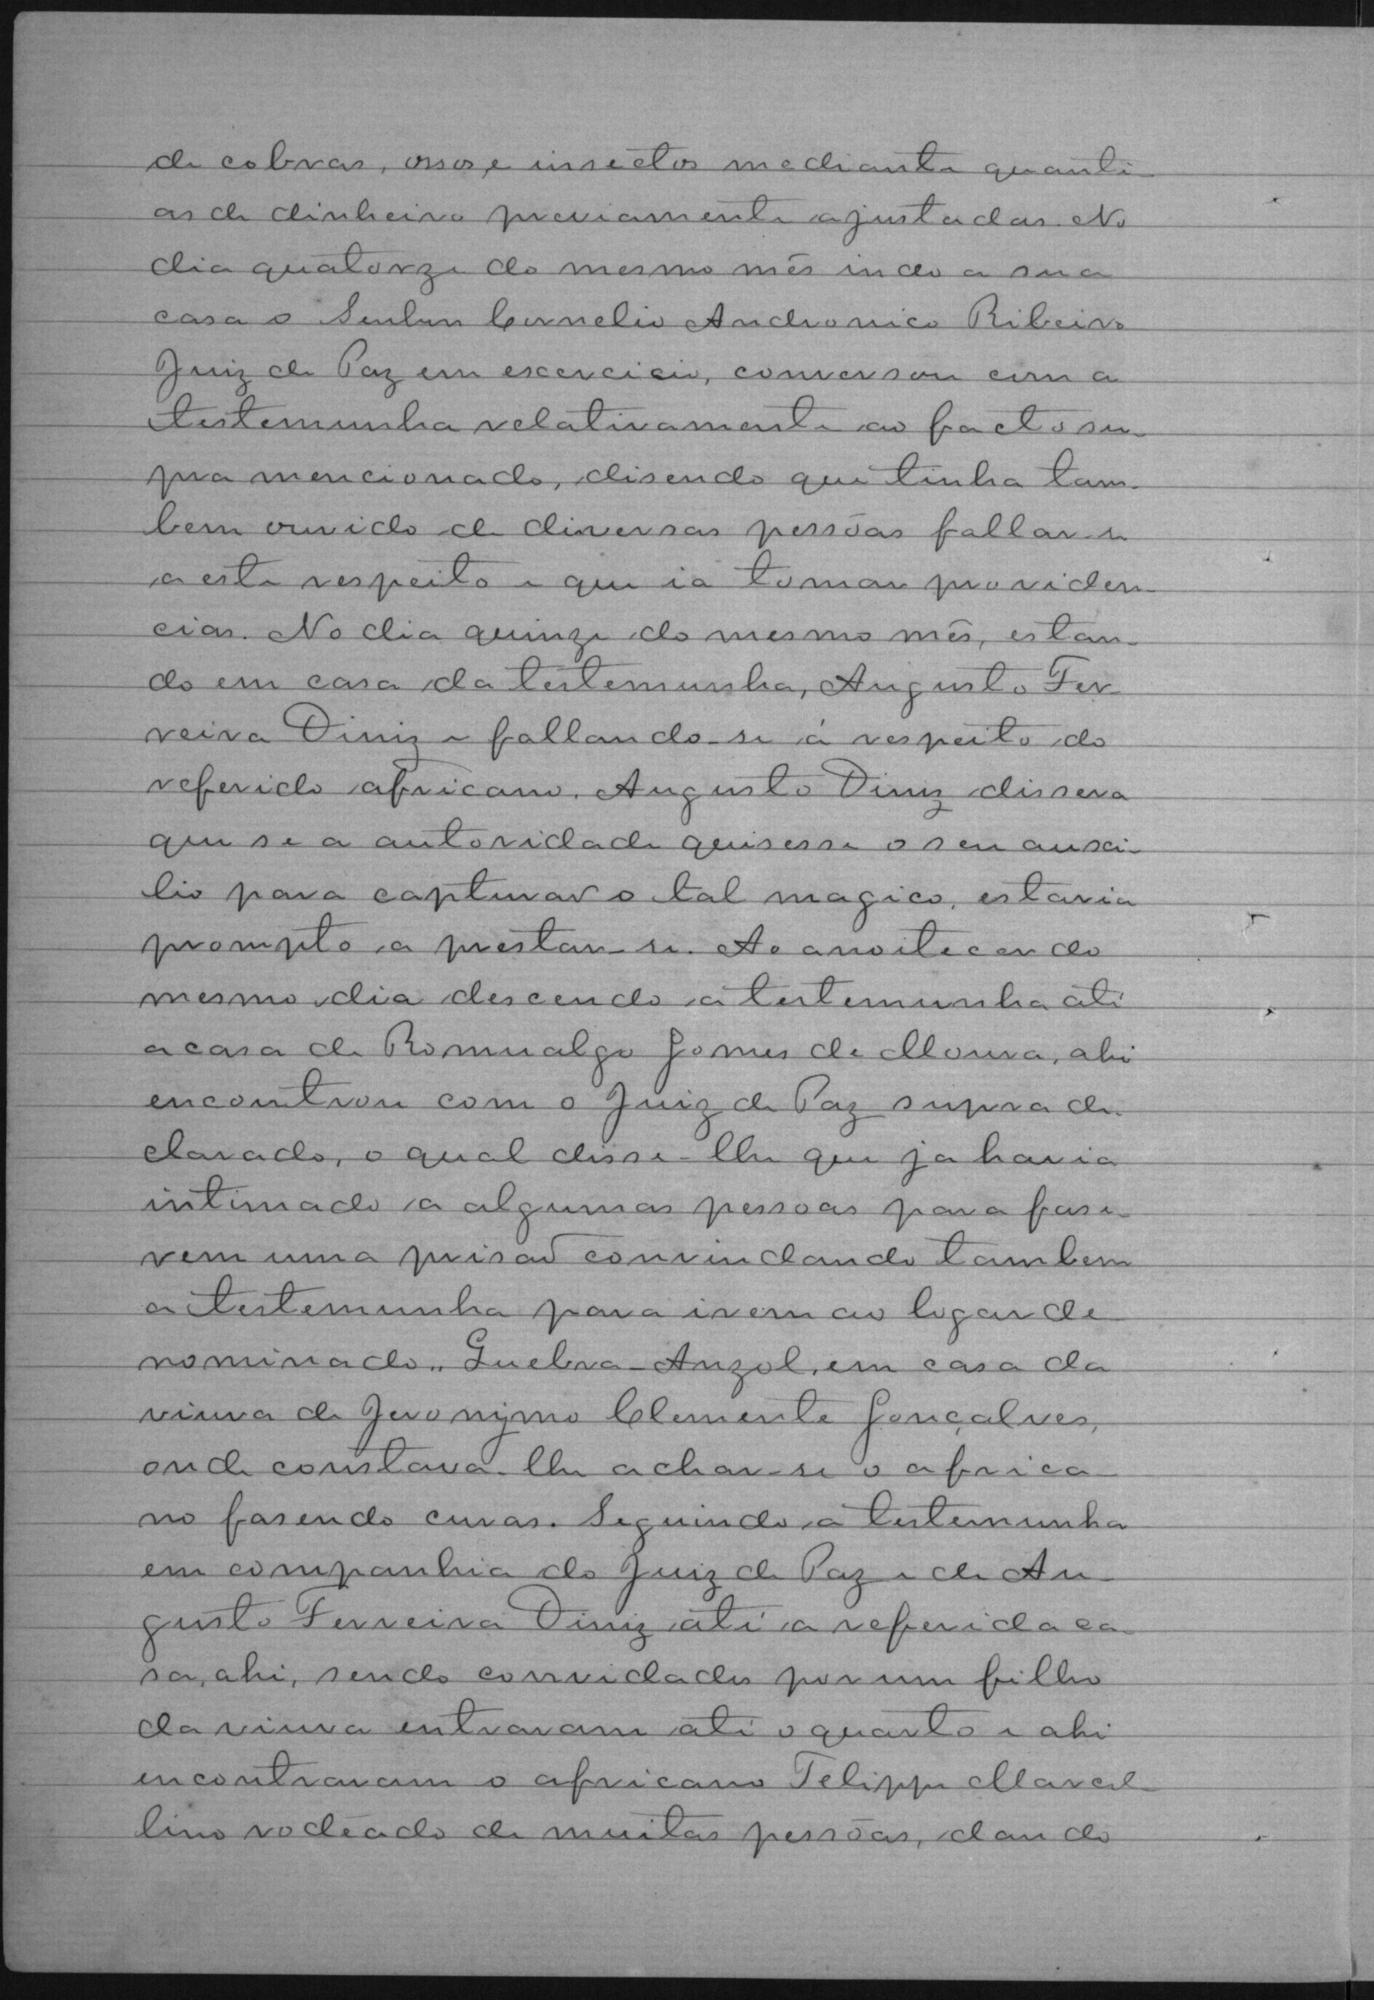 de cobras, ossos, e insectos mediante quanti-
as de dinheiro previamente ajustadas. No
dia quatorze do mesmo mês indo a sua
casa o Senhor Cornelio Andronico Ribeiro
Juiz de Paz em exercicio, conversou com a
testemunha relativamente ao facto su-
pra mencionado, disendo que tinha tam-
bem ouvido de diversas pessôas fallar-se
a este respeito e que ia tomar providen-
cias. No dia quinze do mesmo mês, estan-
do em casa da testemunha, Augusto Fer-
reira Diniz e fallando-se á respeito do
referido africano, Augusto Diniz dissera
que se a autoridade quisesse o seu auxi-
lio para capturar o tal magico, estaria
prompto a prestar-se. Ao anoitecer do
mesmo dia descendo a testemunha até
a casa de Romualgo Gomes de Moura, ahi
encontrou com o Juiz de Paz supra de-
clarado, o qual disse-lhe que ja havia
intimado a algumas pessoas para fase-
rem uma prisão convindando tambem
a testemunha para irem ao logar de
nominado „Quebra-Anzol, em casa da
viuva de Jeronymo Clemente Gonçalves,
onde constava-lhe achar-se o africa-
no fasendo curas. Seguindo a testemunha
em companhia do Juiz de Paz e de Au-
gusto Ferreira Diniz até a referida ca-
sa, ahi, sendo convidados por um filho
da viuva entraram até o quarto e ahi
encontraram o africano Felippe Marcel-
lino rodeado de muitas pessôas, dando